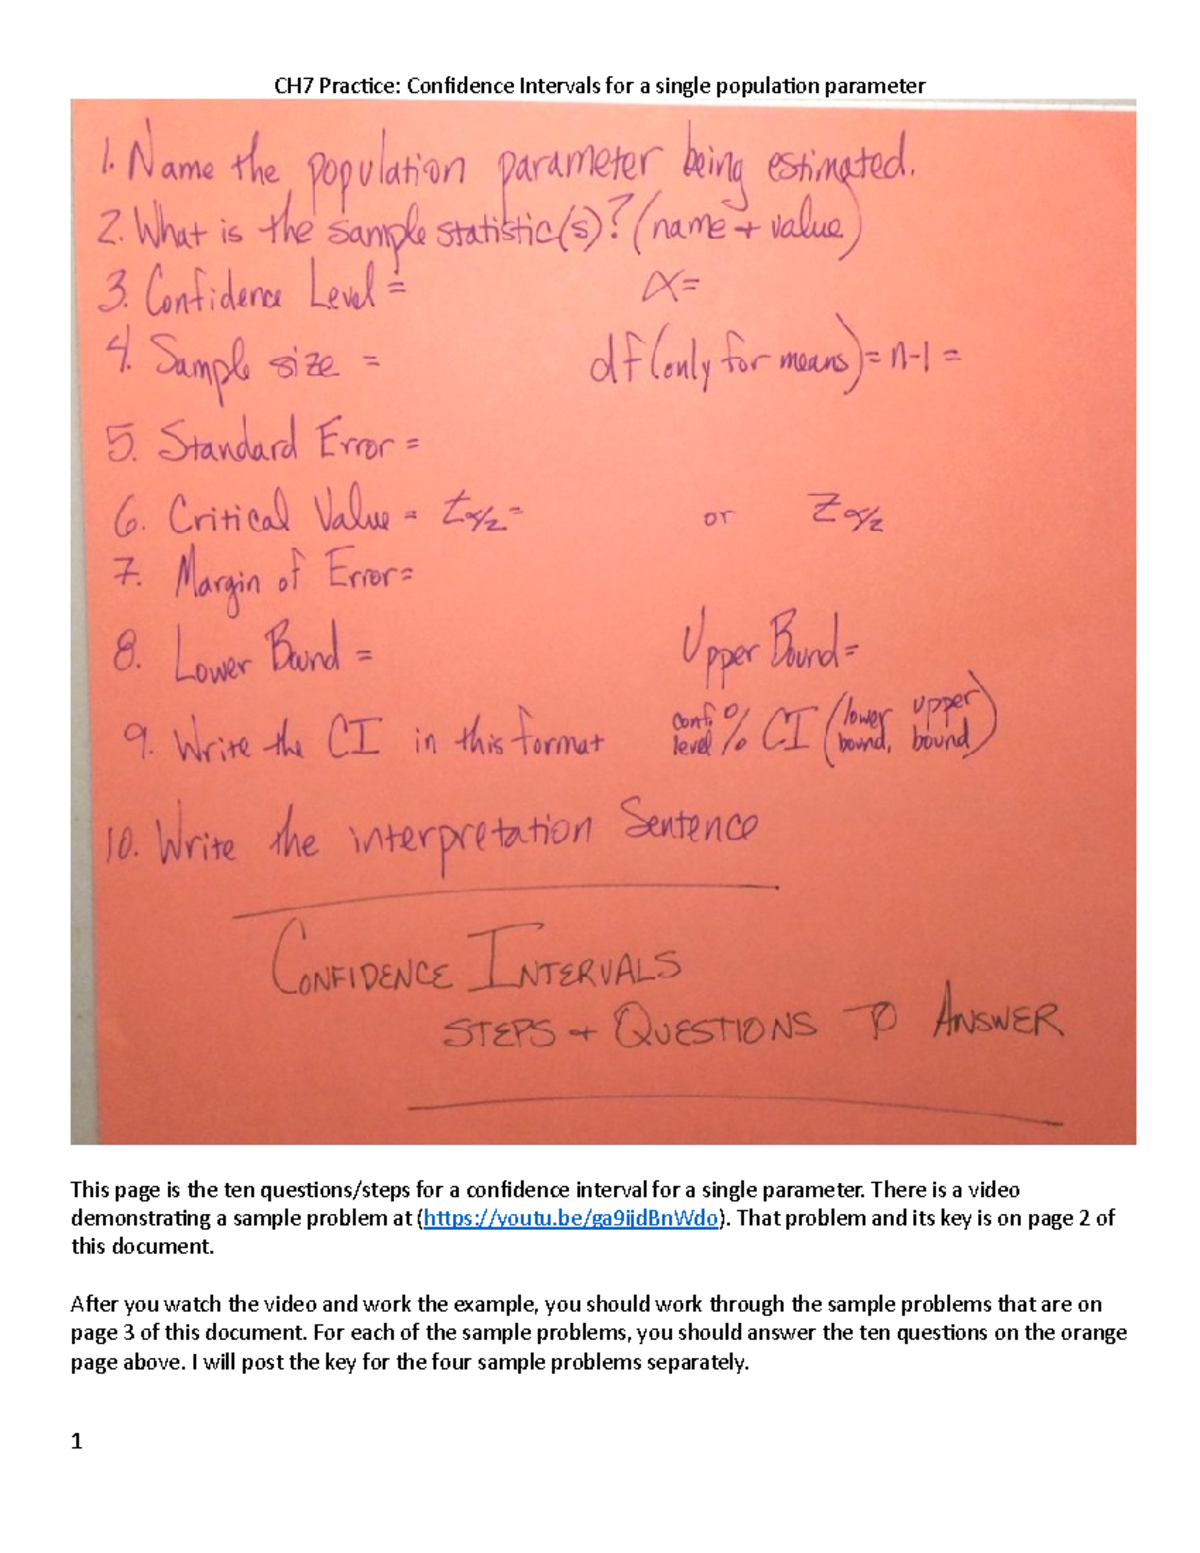 CH7 Practice: Confidence Intervals for a single population parameter
1. Name the population parameter being estimated.
2. What is the sample statistic(s)? (name + value)
3. Confidence Level = α=
4. Sample size = df (only for means) = n-1 =
5. Standard Error =
6. Critical Value = tα/2 = or Zα/2
7. Margin of Error=
8. Lower Bound = Upper Bound=
9. Write the CI in this format conf. level % CI (lower bound, upper bound)
10. Write the interpretation Sentence
CONFIDENCE INTERVALS
STEPS + QUESTIONS TO ANSWER
This page is the ten questions/steps for a confidence interval for a single parameter. There is a video
demonstrating a sample problem at (https://youtu.be/ga9ijdBnWdo). That problem and its key is on page 2 of
this document.
After you watch the video and work the example, you should work through the sample problems that are on
page 3 of this document. For each of the sample problems, you should answer the ten questions on the orange
page above. I will post the key for the four sample problems separately.
1